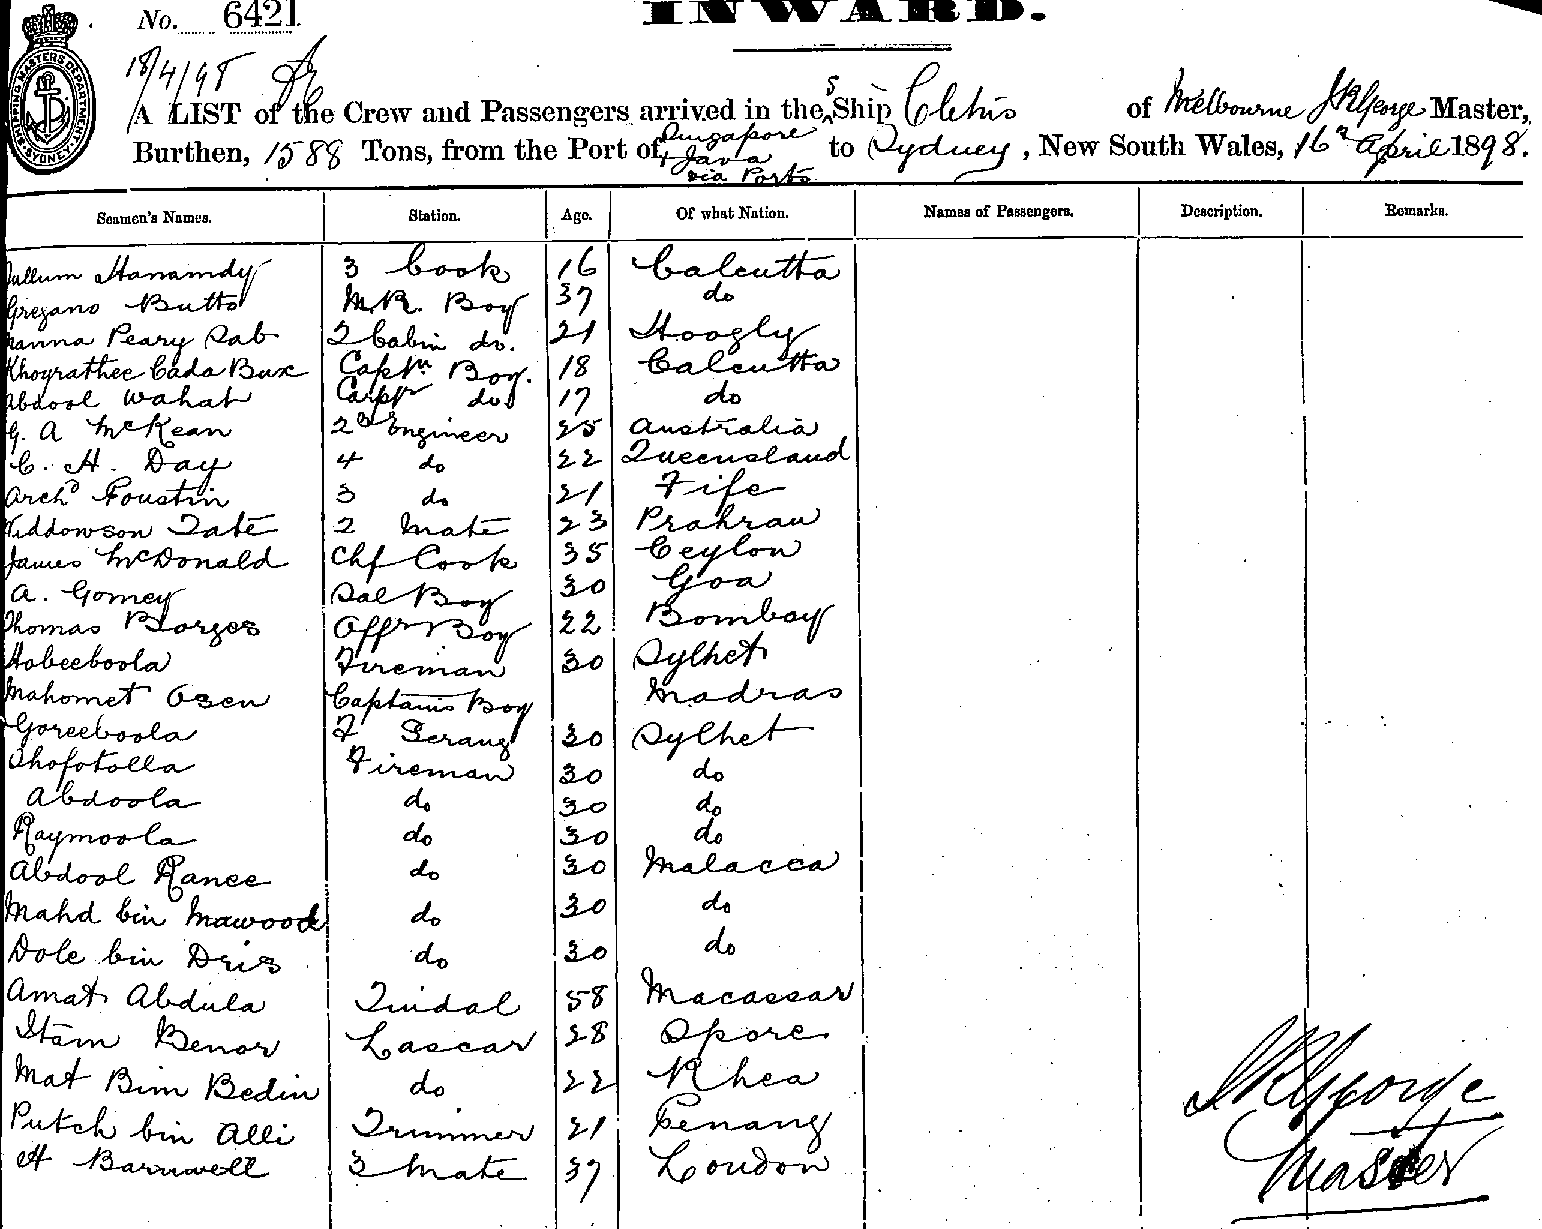 No. 6421
INWARD.
SHIPPING MASTERS DEPARTMENT SYDNEY
18/4/98
A LIST of the Crew and Passengers arrived in the S Ship Clitus of Melbourne J R George Master,
Burthen, 1588 Tons, from the Port of Singapore + Java via Ports to Sydney, New South Wales, 16 April 1898.
Seamen's Names. Station. Age. Of what Nation. Names of Passengers. Description. Remarks.
Hanamdy 3 Cook 16 Calcutta
Gregano Butto M.R. Boy 37 do
Peary Sab 2 Cabin do. 21 Hoogly
Khoyrathee Cada Bux Captn Boy. 18 Calcutta
Abdool Wahat Carpr do 17 do
G. A McKean 2d Engineer 25 Australia
C. H. Day 4 do 22 Queensland
Archd Foustin 3 do 21 Fife
Widdowson Tate 2 Mate 23 Prahran
James McDonald Chf Cook 35 Ceylon
A. Gomey Sal Boy 30 Goa
Thomas Borges Offr Boy 22 Bombay
Hobeeboola Fireman 30 Sylhet
Mahomet Osen Captains Boy Madras
Goreeboola F Serang 30 Sylhet
Shofotolla Fireman 30 do
Abdoola do 30 do
Raymoola do 30 do
Abdool Ranee do 30 Malacca
Mahd bin Mawood do 30 do
Dole bin Dris do 30 do
Amat Abdula Tindal 58 Macassar
Itam Benor Lascar 28 Spore
Mat Bim Bedin do 22 Rhea
Putch bin Alli Trimmer 21 Penang
H Barnwell 3 Mate 37 London
J R George
Master